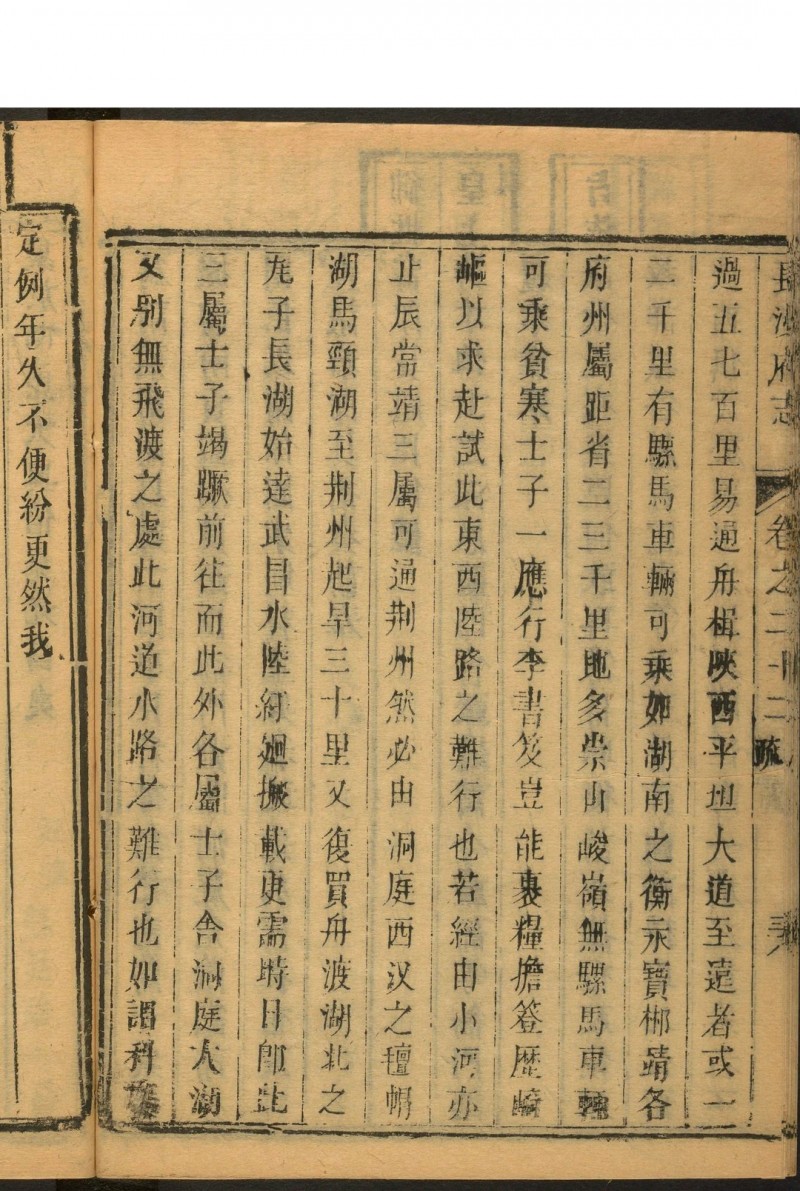 長沙府志 卷之二十二 疏
過五七百里易通舟楫陝西平坦大道至遠者或一
二千里有騾馬車輛可乘如湖南之衡永寶郴靖各
府州屬距省二三千里地多崇山峻嶺無騾馬車輛
可乘貧寒士子一應行李書笈豈能裹糧擔簦歷崎
嶇以求赴試此東西陸路之難行也若經由小河亦
止辰常靖三屬可通荆州然必由洞庭西汊之
湖馬頸湖至荆州起旱三十里又復買舟渡湖北之
子長湖始達武昌水陸紆廻搬載更需時日即此
三屬士子竭蹶前往而此外各屬士子舍洞庭大湖
又别無飛渡之處此河道水路之難行也如謂科
定例年久不便紛更然我